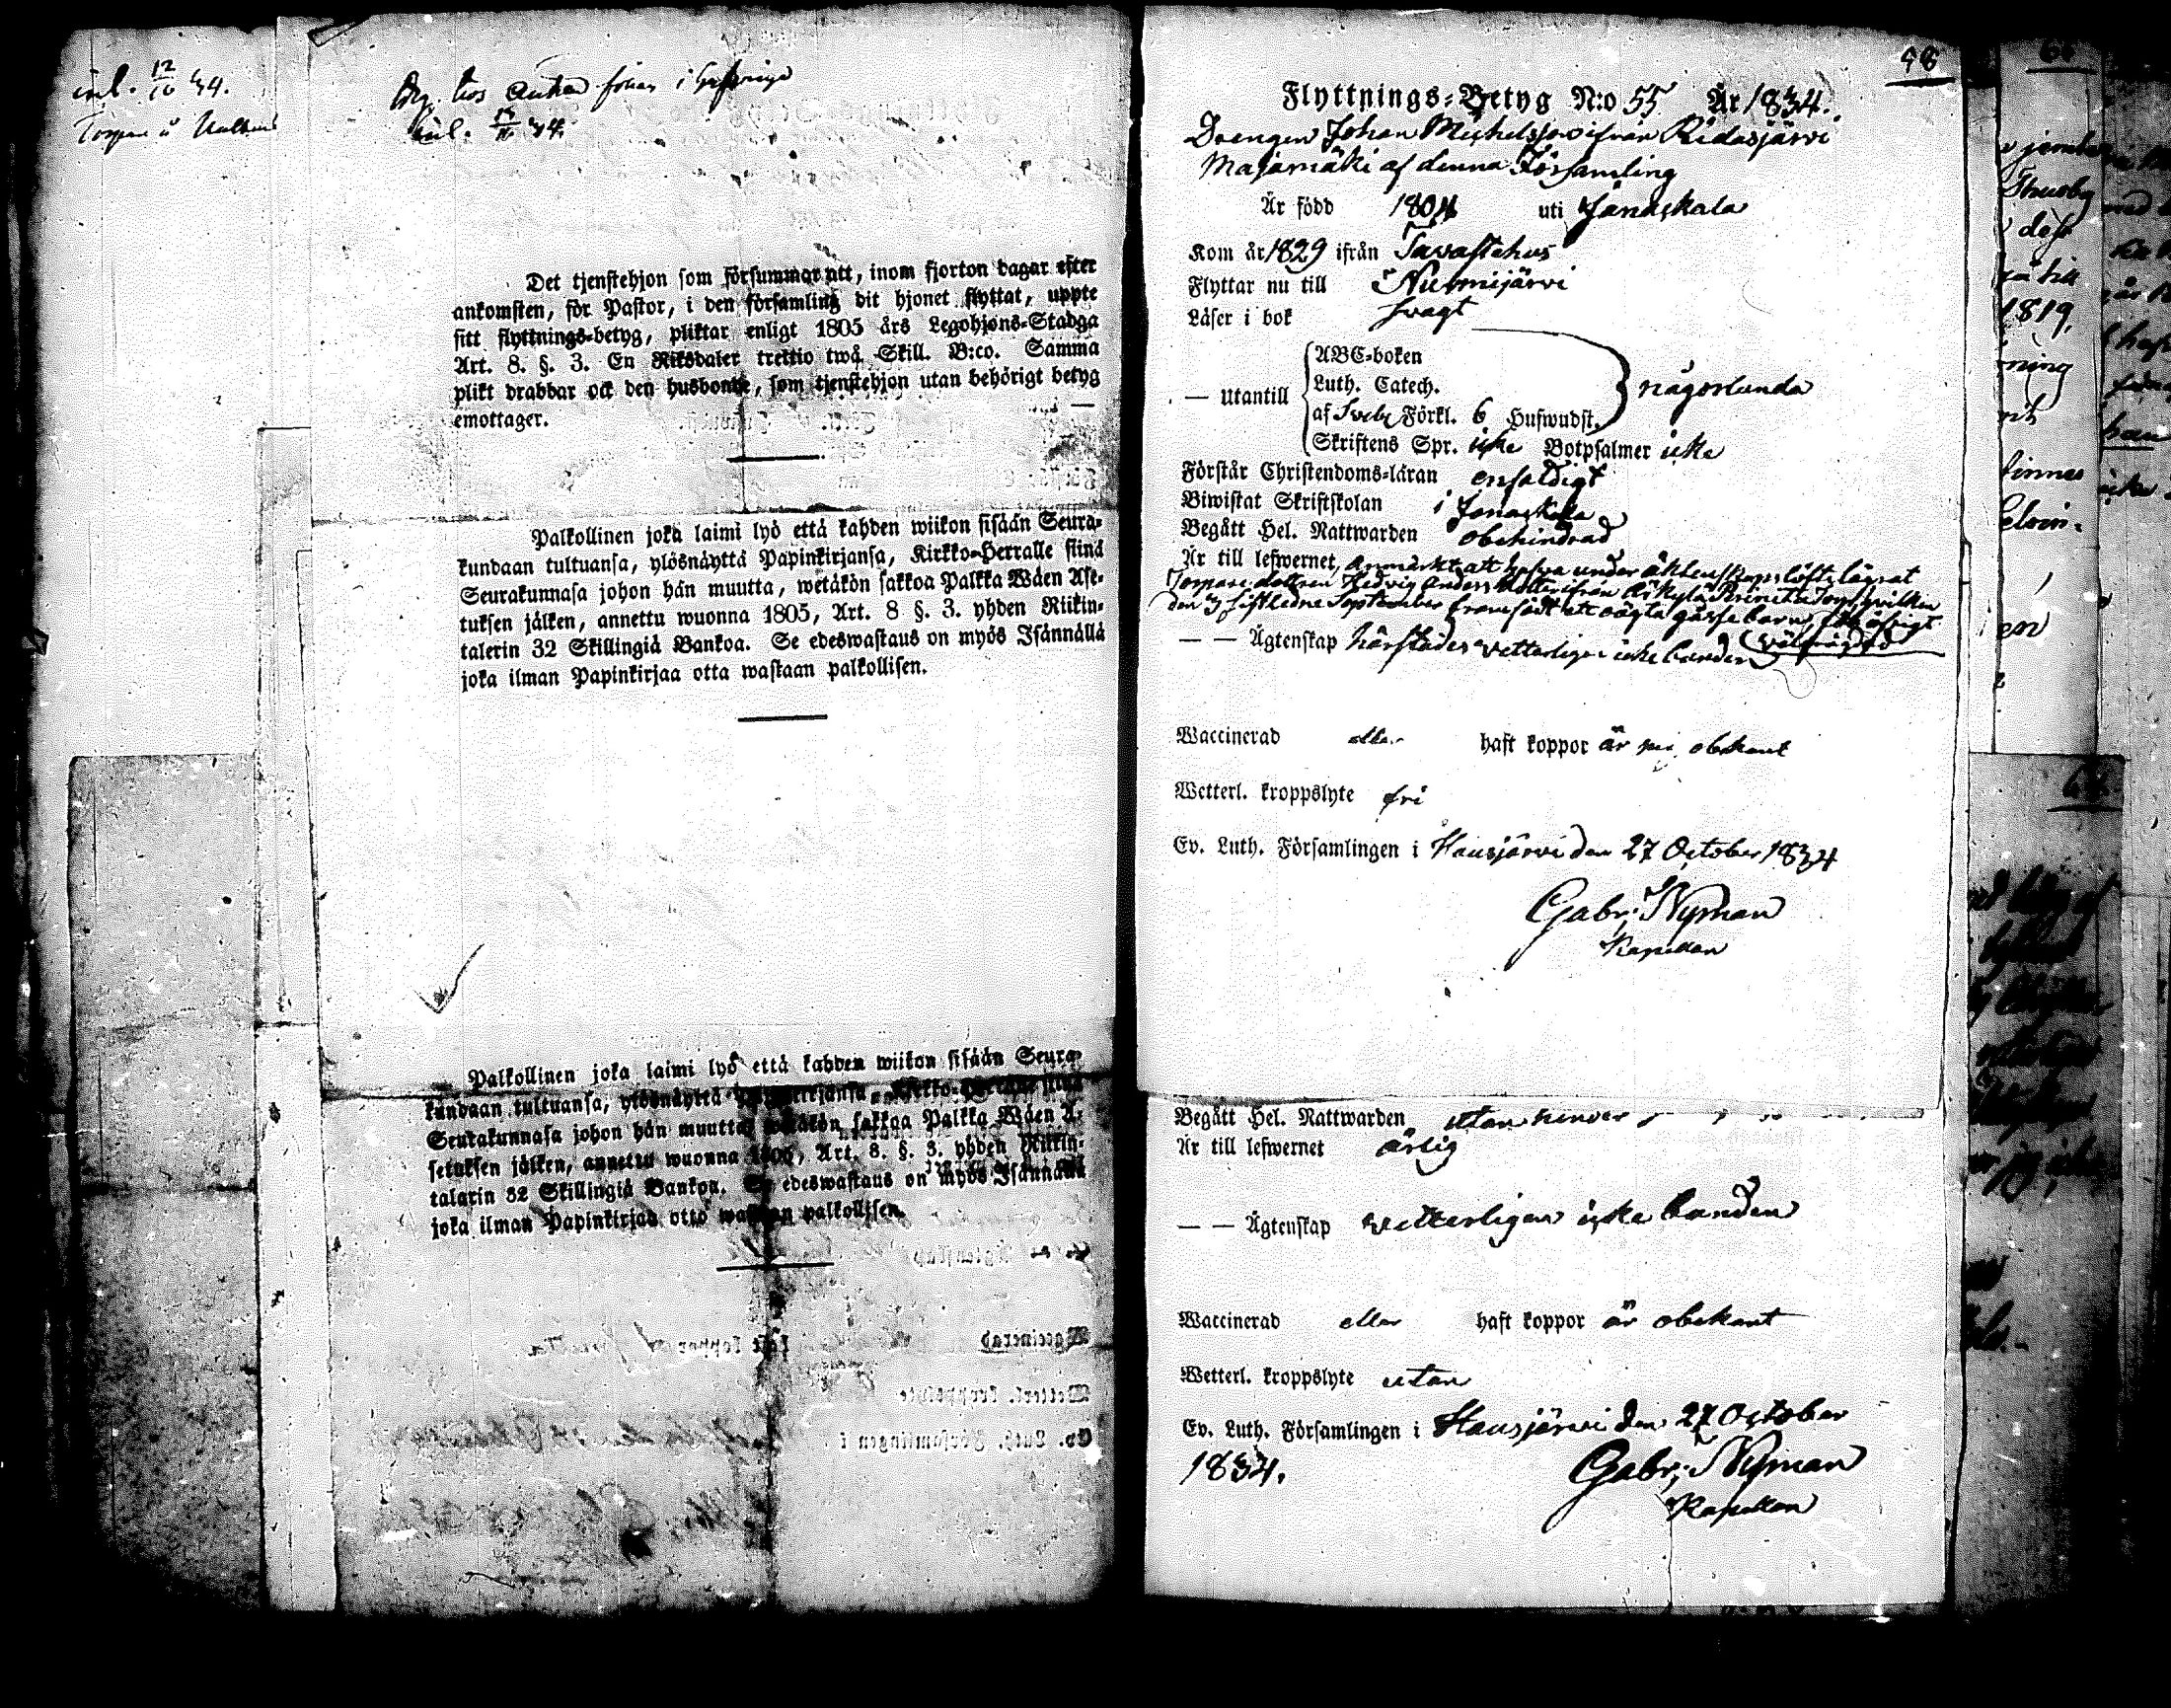 inl. 12/10 34.
hos
inl. 34.
Det tjenstehjon som försummar att, inom fjorton dagar efter
ankomsten, för Pastor, i den församling dit hjonet flyttat, uppte
sitt flyttnings-betyg, pliktar enligt 1805 års Legohjons-Stadga
Art. 8. §. 3. En Riksdaler trettio twå Skill. B:co. Samma
plikt drabbar ock den husbonde, som tjenstehjon utan behörigt betyg
emottager.
Palkollinen joka laimi lyö että kahden wiikon sisään Seura-
kundaan tultuansa, ylösnäyttä Papinkirjansa, Kirkko-Herralle siinä
Seurakunnasa johon hän muutta, wetäkön sakkoa Palkka Wäen Ase-
tuksen jälken, annettu wuonna 1805, Art. 8 §. 3. yhden Riikin-
talerin 32 Skillingiä Bankoa. Se edeswastaus on myös Isännällä
joka ilman Papinkirjaa otta wastaan palkollisen.
Palkollinen joka laimi lyö että kahden wiikon sisään Seura-
kundaan tultuansa, ylösnäyttä
Seurakunnasa johon hän muutta, wetäkön sakkoa Palkka Wäen A-
setuksen jälken, annettu wuonna 1805, Art. 8. §. 3. yhden Riikin-
talarin 32 Skillingiä Bankoa. Se edeswastaus on myös Isännällä
joka ilman Papinkirjaa otto wastaan palkollisen.
58
Flyttnings-Betyg N:o 55 År 1834.
Drengen Johan Michelsson ifrån Ridasjärvi
Majamäki af denna Församling
Är född 1804 uti Janakkala
Kom år 1829 ifrån Tavastehus
Flyttar nu till Nurmijärvi
Läser i bok svagt
— utantill
ABC-boken
Luth. Catech.
af Sveb. Förkl. 6 Hufwudst. någorlunda
Skriftens Spr. icke Botpsalmer icke
Förstår Christendoms-läran enfaldigt
Biwistat Skriftskolan i Janakkala
Begått Hel. Nattwarden obehindrad
Är till lefwernet, anmärkt att hafva under äktenskaps löfte lägrat
Torpare dottren Hedvig Anders dotter ifrån hvilken
den sistledne September framfödt ett oägta gåsse barn, för öfrigt
— — Ägtenskap härstädes vetterligen icke bunden välfrägdad
Waccinerad eller haft koppor är obekant
Wetterl. kroppslyte fri
Ev. Luth. Församlingen i Hausjärvi den 27 October 1834
Gabr. Nyman
Kapellan
Begått Hel. Nattwarden utan hinder
Är till lefwernet ärlig
— — Ägtenskap vetterligen icke bunden
Waccinerad eller haft koppor är obekant
Wetterl. kroppslyte utan
Ev. Luth. Församlingen i Hausjärvi den 27 October
1834.
Gabr. Nyman
Kapellan
1819,